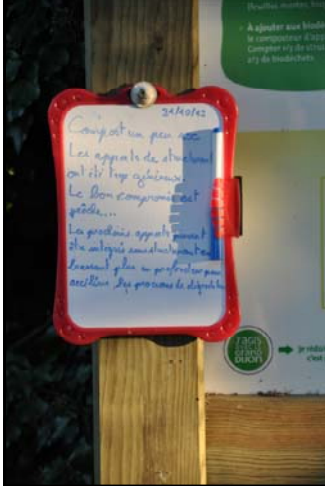 Feuilles mortes, bro
• À ajouter aux biodé
le composteur d'app
Compter 1/3 de struc
2/3 de biodéchets.
21/10/12
Compost un peu sec
Les apports de structurant
ont été trop généreux.
Le bon compromis est
proche...
Les prochains apports peuvent
être intégrés sans structurant en
brassant plus en profondeur pour
accélérer les processus de dégradation
J'AGIS
GRAND
DIJON
je rédui
c'est